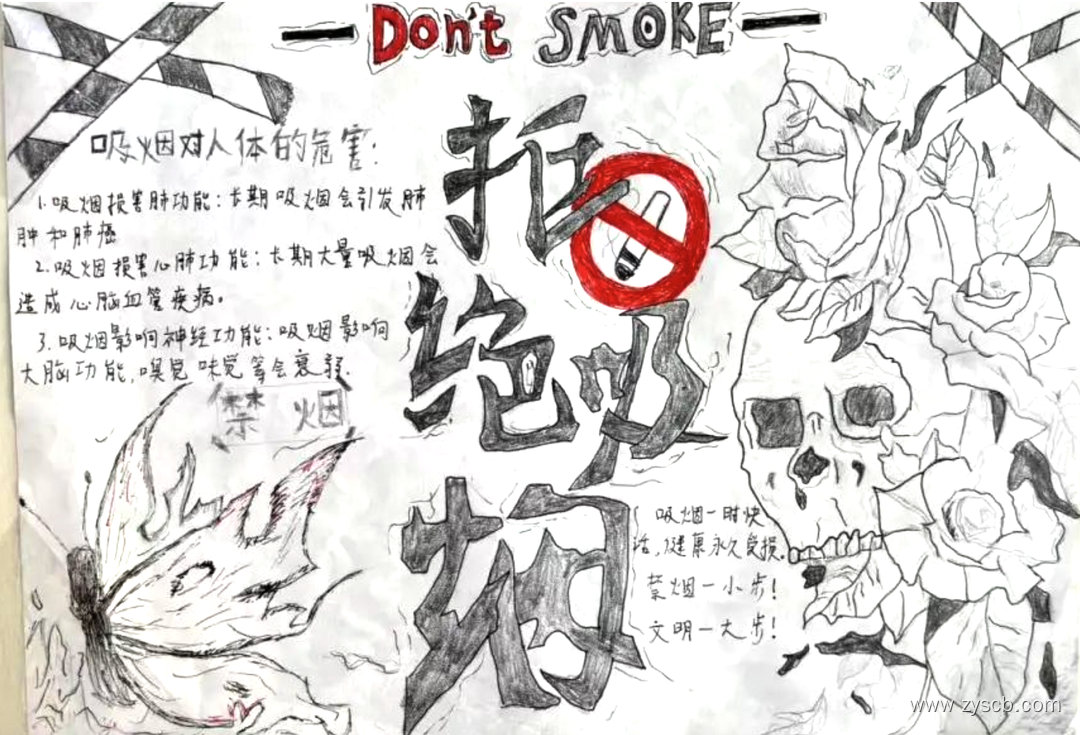 Don't SMOKE
吸烟对人体的危害:
1.吸烟损害肺功能:长期吸烟会引发肺
肿和肺癌
2.吸烟损害心肺功能:长期大量吸烟会
造成心脑血管疾病。
3.吸烟影响神经功能:吸烟影响
大脑功能,嗅觉味觉等会衰弱.
禁烟
拒
绝吸
烟
吸烟一时快
活,健康永久受损.
禁烟一小步!
文明一大步!
www.zyscb.com